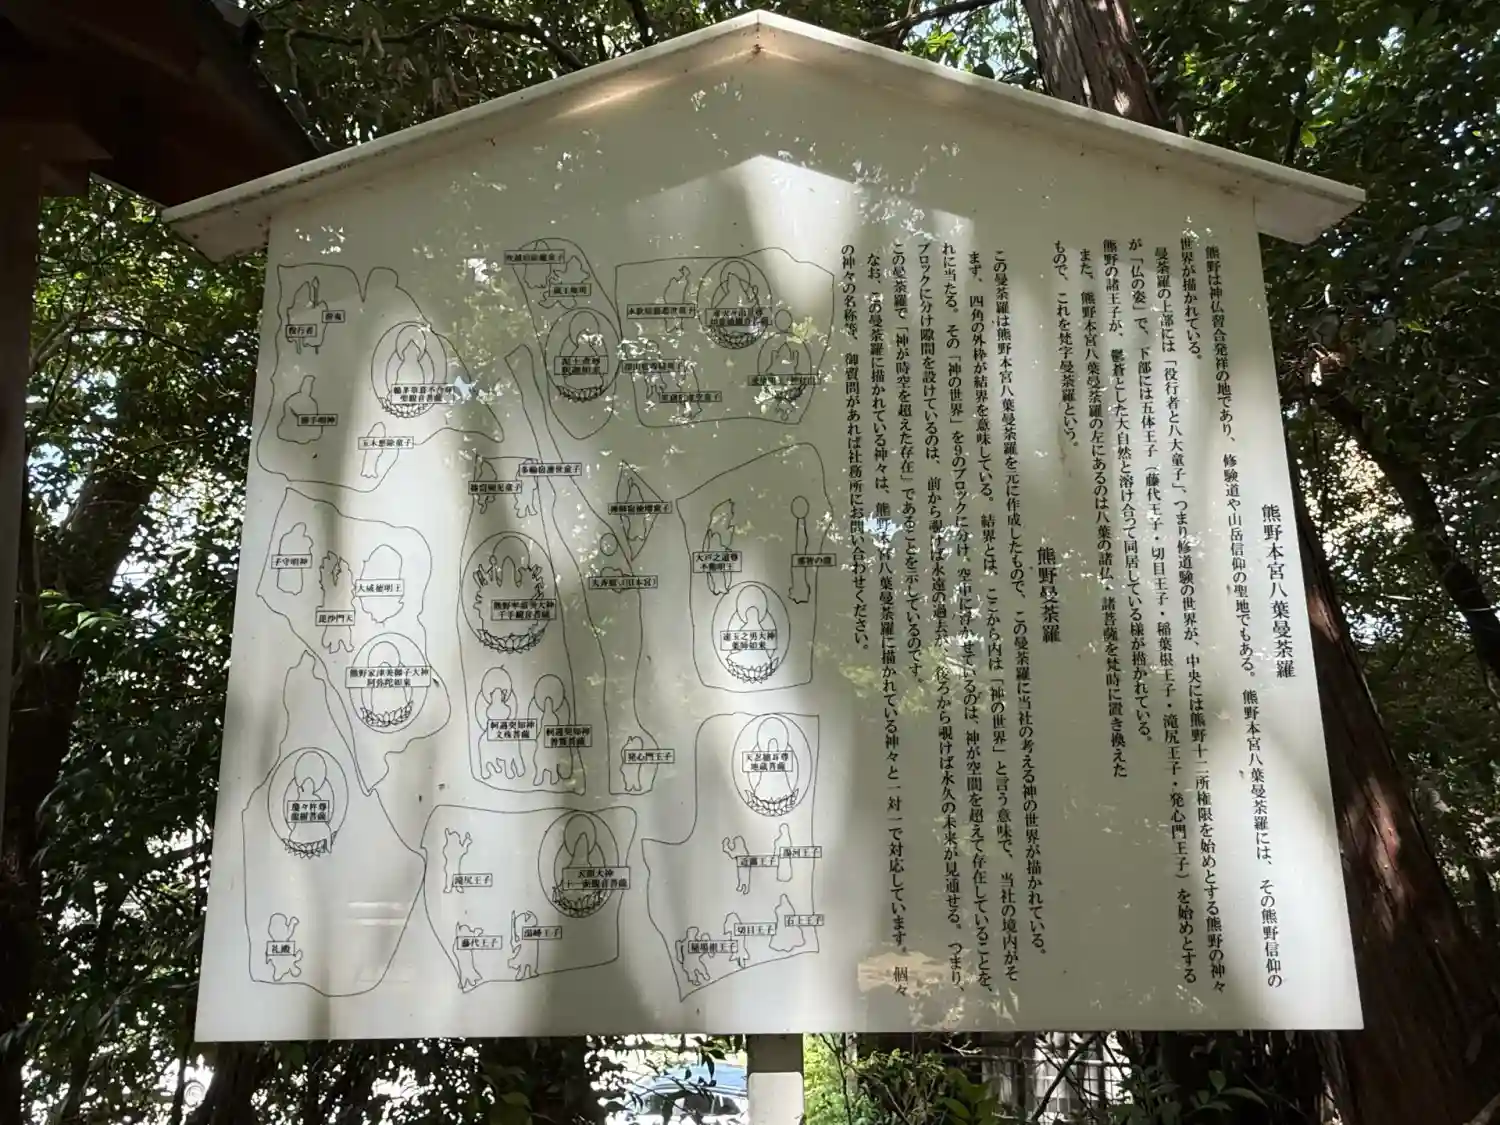 熊野本宮八葉曼荼羅
熊野は神仏習合発祥の地であり、修験道や山岳信仰の聖地でもある。熊野本宮八葉曼荼羅には、その熊野信仰の
世界が描かれている。
曼荼羅の上部には「役行者と八大童子」、つまり修道験の世界が、中央には熊野十二所権限を始めとする熊野の神々
が「仏の姿」で、下部には五体王子（藤代王子・切目王子・稲葉根王子・滝尻王子・発心門王子）を始めとする
熊野の諸王子が、鬱蒼とした大自然と溶け合って同居している様が描かれている。
また、熊野本宮八葉曼荼羅の左にあるのは八葉の諸仏、諸菩薩を梵時に置き換えた
もので、これを梵字曼荼羅という。
熊野曼荼羅
この曼荼羅は熊野本宮八葉曼荼羅を元に作成したもので、この曼荼羅に当社の考える神の世界が描かれている。
まず、四角の外枠が結界を意味している。結界とは、ここから内は「神の世界」と言う意味で、当社の境内がそ
れに当たる。その「神の世界」を９のブロックに分け、空中に浮かせているのは、神が空間を超えて存在していることを、
ブロックに分け隙間を設けているのは、前から覗けば永遠の過去が、後ろから覗けば永久の未来が見通せる。つまり、
この曼荼羅で「神が時空を超えた存在」であることを示しているのです。
なお、この曼荼羅に描かれている神々は、熊野本宮八葉曼荼羅に描かれている神々と一対一で対応しています。個々
の神々の名称等、御質問があれば社務所にお問い合わせください。
役行者
勝手明神
玉木悪除童子
聖観音菩薩
蔵王権現
釈迦如来
那智の瀧
大戸之道尊
不動明王
速玉之男大神
薬師如来
子守明神
大威徳明王
毘沙門天
熊野家津美御子大神
阿弥陀如来
熊野牟須美大神
千手観音菩薩
大斎原（旧本宮）
軻遇突知神
文殊菩薩
軻遇突知神
普賢菩薩
発心門王子
天忍穂耳尊
地蔵菩薩
瓊々杵尊
龍樹菩薩
礼殿
滝尻王子
天照大神
十一面観音菩薩
藤代王子
湯峰王子
近露王子
湯河王子
切目王子
石上王子